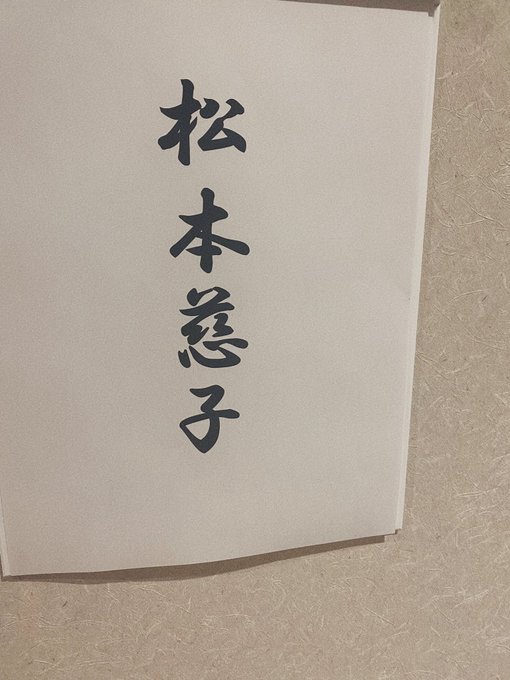 松本慈子